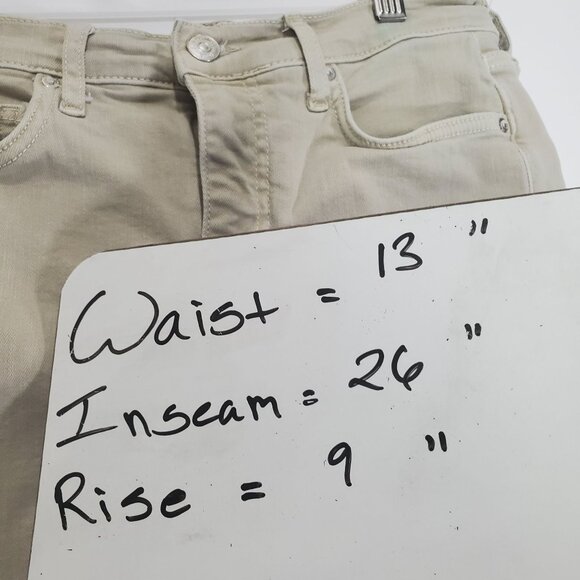 Waist = 13 "
Inseam = 26 "
Rise = 9 "